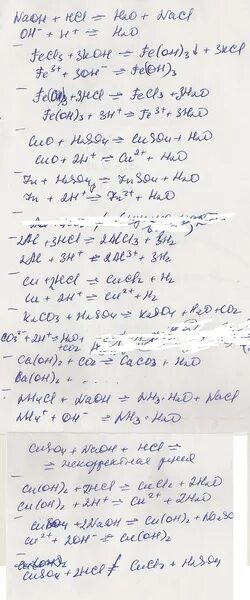 NaOH + HCl ⇌ H₂O + NaCl
OH⁻ + H⁺ ⇌ H₂O
FeCl₃ + 3KOH ⇌ Fe(OH)₃↓ + 3KCl
Fe³⁺ + 3OH⁻ ⇌ Fe(OH)₃
Fe(OH)₃ + 3HCl ⇌ FeCl₃ + 3H₂O
Fe(OH)₃ + 3H⁺ ⇌ Fe³⁺ + 3H₂O
CuO + H₂SO₄ ⇌ CuSO₄ + H₂O
CuO + 2H⁺ ⇌ Cu²⁺ + H₂O
Zn + H₂SO₄ ⇌ ZnSO₄ + H₂O
Zn + 2H⁺ ⇌ Zn²⁺ + H₂O
2Al + 3HCl ⇌ 2AlCl₃ + 3H₂
2Al + 3H⁺ ⇌ 2Al³⁺ + 3H₂
Cu + 2HCl ⇌ CuCl₂ + H₂
Cu + 2H⁺ ⇌ Cu²⁺ + H₂
K₂CO₃ + H₂SO₄ ⇌ K₂SO₄ + H₂O + CO₂
CO₃²⁻ + 2H⁺ ⇌ H₂O + CO₂
Ca(OH)₂ + CO₂ ⇌ CaCO₃ + H₂O
Ba(OH)₂ + . . .
NH₄Cl + NaOH ⇌ NH₃·H₂O + NaCl
NH₄⁺ + OH⁻ ⇌ NH₃·H₂O
CuSO₄ + NaOH + HCl ⇌
⇌ некорректная
Cu(OH)₂ + 2HCl ⇌ CuCl₂ + 2H₂O
Cu(OH)₂ + 2H⁺ ⇌ Cu²⁺ + 2H₂O
CuSO₄ + 2NaOH ⇌ Cu(OH)₂ + Na₂SO₄
Cu²⁺ + 2OH⁻ ⇌ Cu(OH)₂
CuSO₄ + 2HCl ≠ CuCl₂ + H₂SO₄